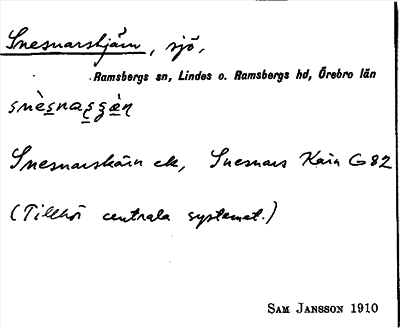 Snesnarstjärn, sjö,
Ramsbergs sn, Lindes o. Ramsbergs hd, Örebro län
Snesnarskärn ek, Snesnars Kärn G82
(Tillhör centrala systemet.)
SAM JANSSON 1910